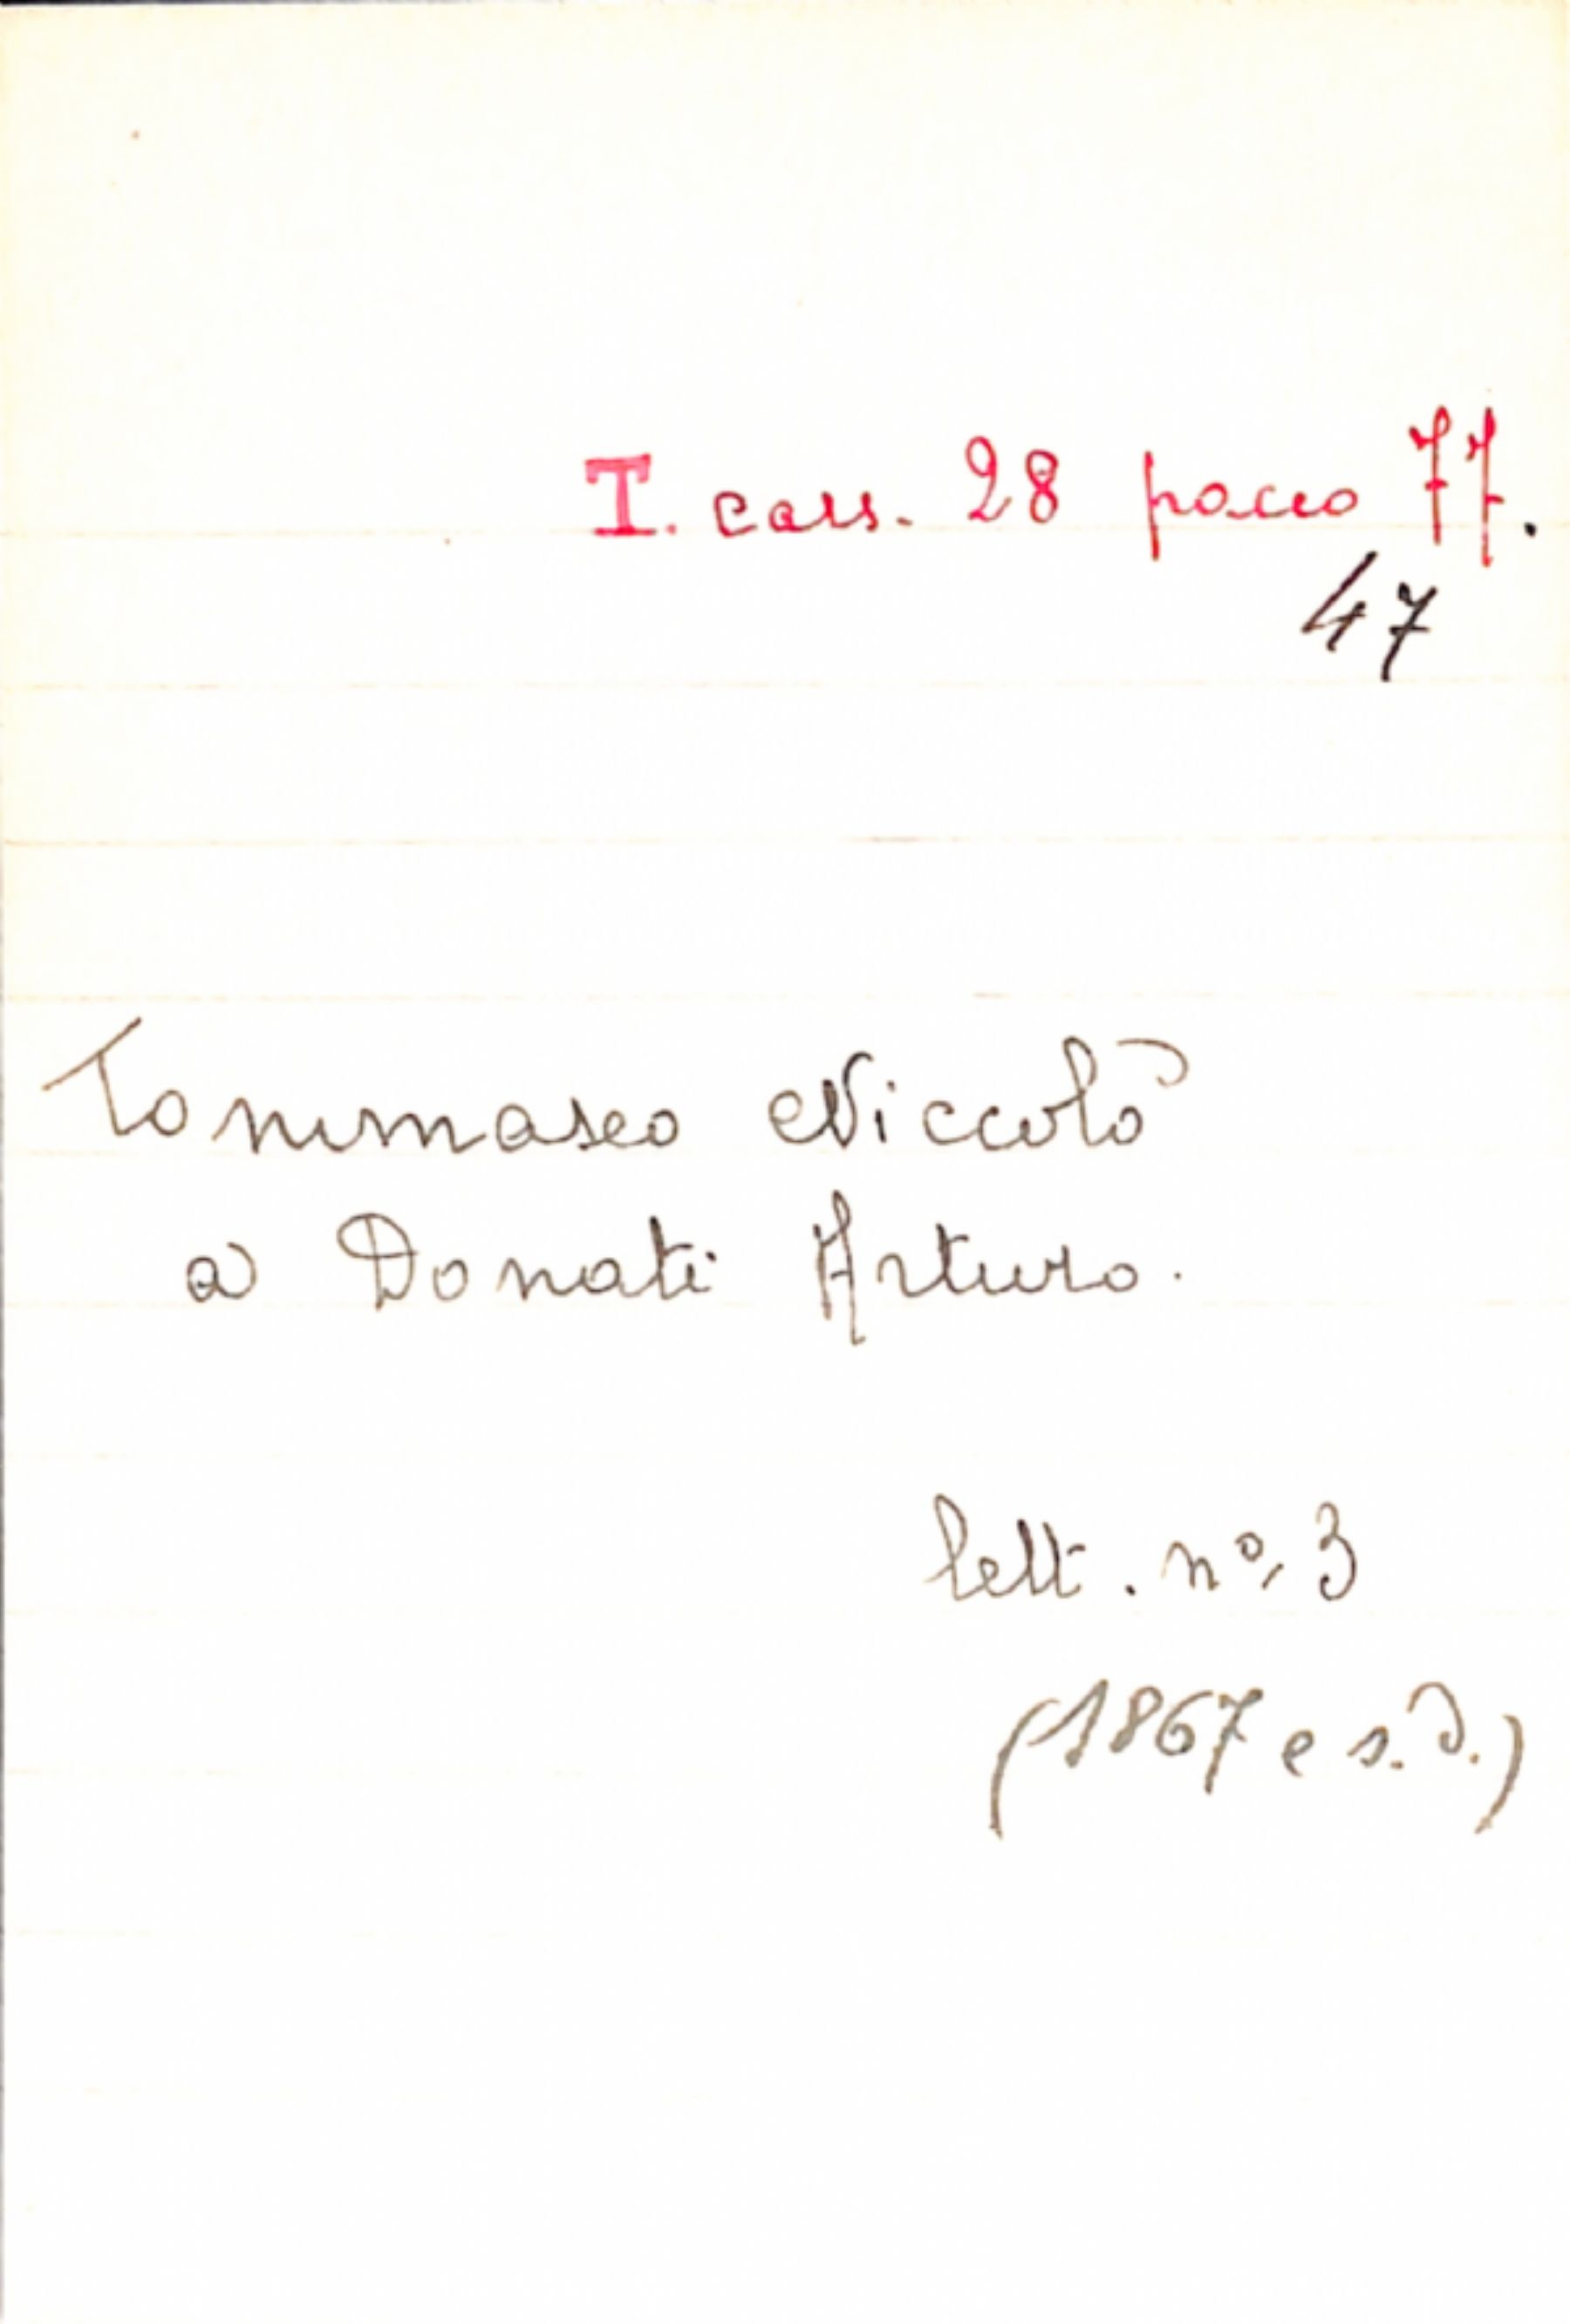 T. cass. 28 pacco 77.
47
Tommaseo Niccolò
a Donati Arturo.
lett. nº, 3
(1867 e s.d.)